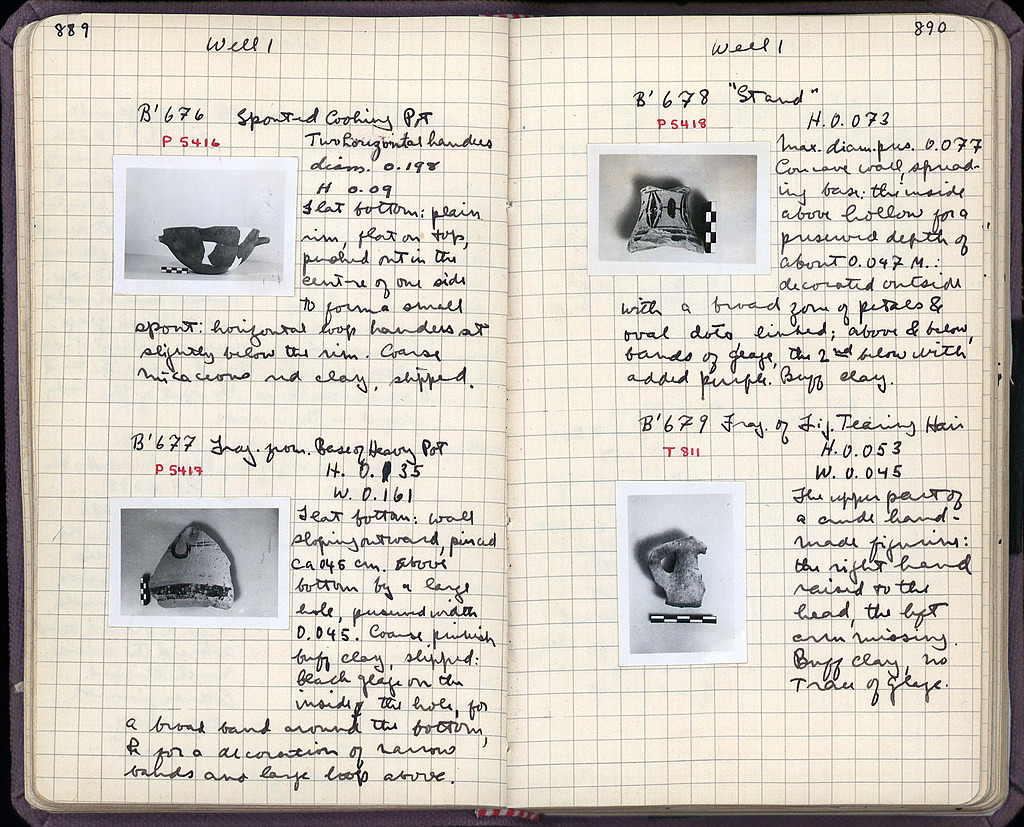 889
Well 1
B'676 Spouted Cooking Pot
P 5416
Two horizontal handles
diam. 0.198
H 0.09
Flat bottom: plain
rim, flat on top,
pushed out in the
centre of one side
to form a small
spout: horizontal loop handles set
slightly below the rim. Coarse
micaceous red clay, slipped.
B'677 Frag. from Base of Heavy Pot
P 5417
H. 0.135
W. 0.161
Flat bottom: wall
sloping outward, pierced
ca 045 cm. above
bottom by a large
hole, preserved width
0.045. Coarse pinkish
buff clay, slipped:
black glaze on the
inside of the hole, for
a broad band around the bottom,
& for a decoration of narrow
bands and large loop above.
890
Well 1
B'678 "Stand"
P 5418
H. 0.073
Max. diam. pres. 0.077
Concave wall, spread-
ing base: the inside
above hollow for a
preserved depth of
about 0.047 M.:
decorated outside
with a broad zone of petals &
oval dots linked; above & below,
bands of glaze, the 2nd below with
added purple. Buff clay.
B'679 Frag. of Fig. Tearing Hair
T 811
H. 0.053
W. 0.045
The upper part of
a crude hand-
made figurine:
the right hand
raised to the
head, the left
arm missing.
Buff clay, no
Trace of glaze.